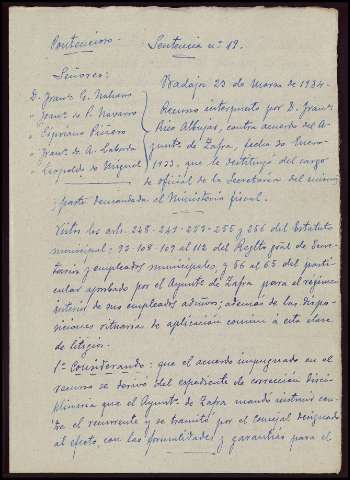 Contencioso - Sentencia nº 19.
Señores:
Badajoz 23 de Marzo de 1934.
D. Franº G. Naharro
" Juanº de P. Navarro
" Cipriano Piñero
" Franº A. Laborda
" Leopoldo de Miguel
Recurso interpuesto por D. Franº
Rico Albújar, contra acuerdo del A-
yuntº de Zafra, fecha 20 Enero
1933, que le destituyó del cargo
de oficial de la Secretaría del mismo
parte demandada el Ministerio fiscal.
Vistos los arts. 248-249-253-255 y 256 del Estatuto
municipal: 93-108-109 al 112 del Reglto gral de Secre-
tarios y empleados municipales, y 56 al 65 del parti-
cular aprobado por el Ayuntº de Zafra para el régimen
interior de sus empleados admvos; además de las dispo-
siciones situarias de aplicación común á esta clase
de litigios.
1º Considerando: que el acuerdo impugnado en el
recurso se derivó del expediente de corrección disci-
plinaria que el Ayuntº de Zafra mandó instruir con-
tra el recurrente y se tramitó por el Concejal designado
al efecto, con las formalidades y garantías para el